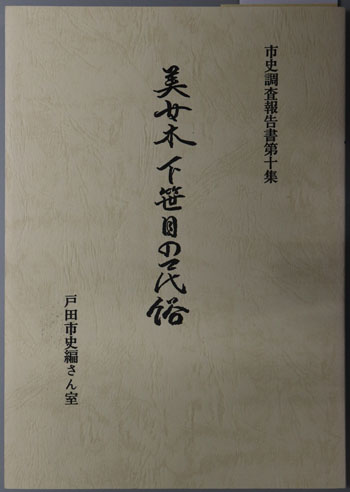 市史調査報告書第十集
美女木下笹目の民俗
戸田市史編さん室